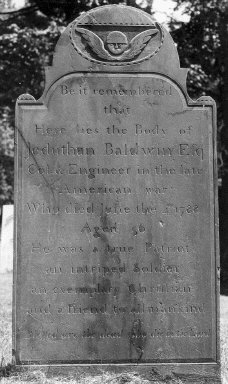 Be it remembered
that
Here lies the Body of
Jeduthan Baldwin Esq
Col. & Engineer in the late
American war
Who died June the 4 1788
Aged 56
He was a true Patriot
an intriped Soldier
an exemplary Christian
and a friend to all mankind
Blessed are the dead who die in the Lord